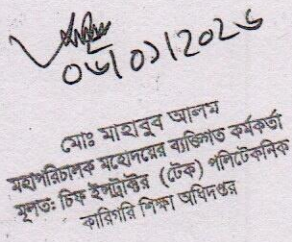 ০৬/০১/2026
মোঃ মাহাবুব আলম
মহাপরিচালক মহোদয়ের ব্যক্তিগত কর্মকর্তা
মূলতঃ চিফ ইন্সট্রাক্টর (টেক) পলিটেকনিক
কারিগরি শিক্ষা অধিদপ্তর